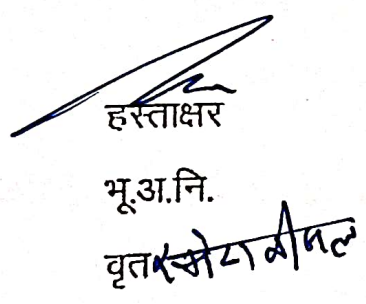 हस्ताक्षर
भू.अ.नि.
वृत